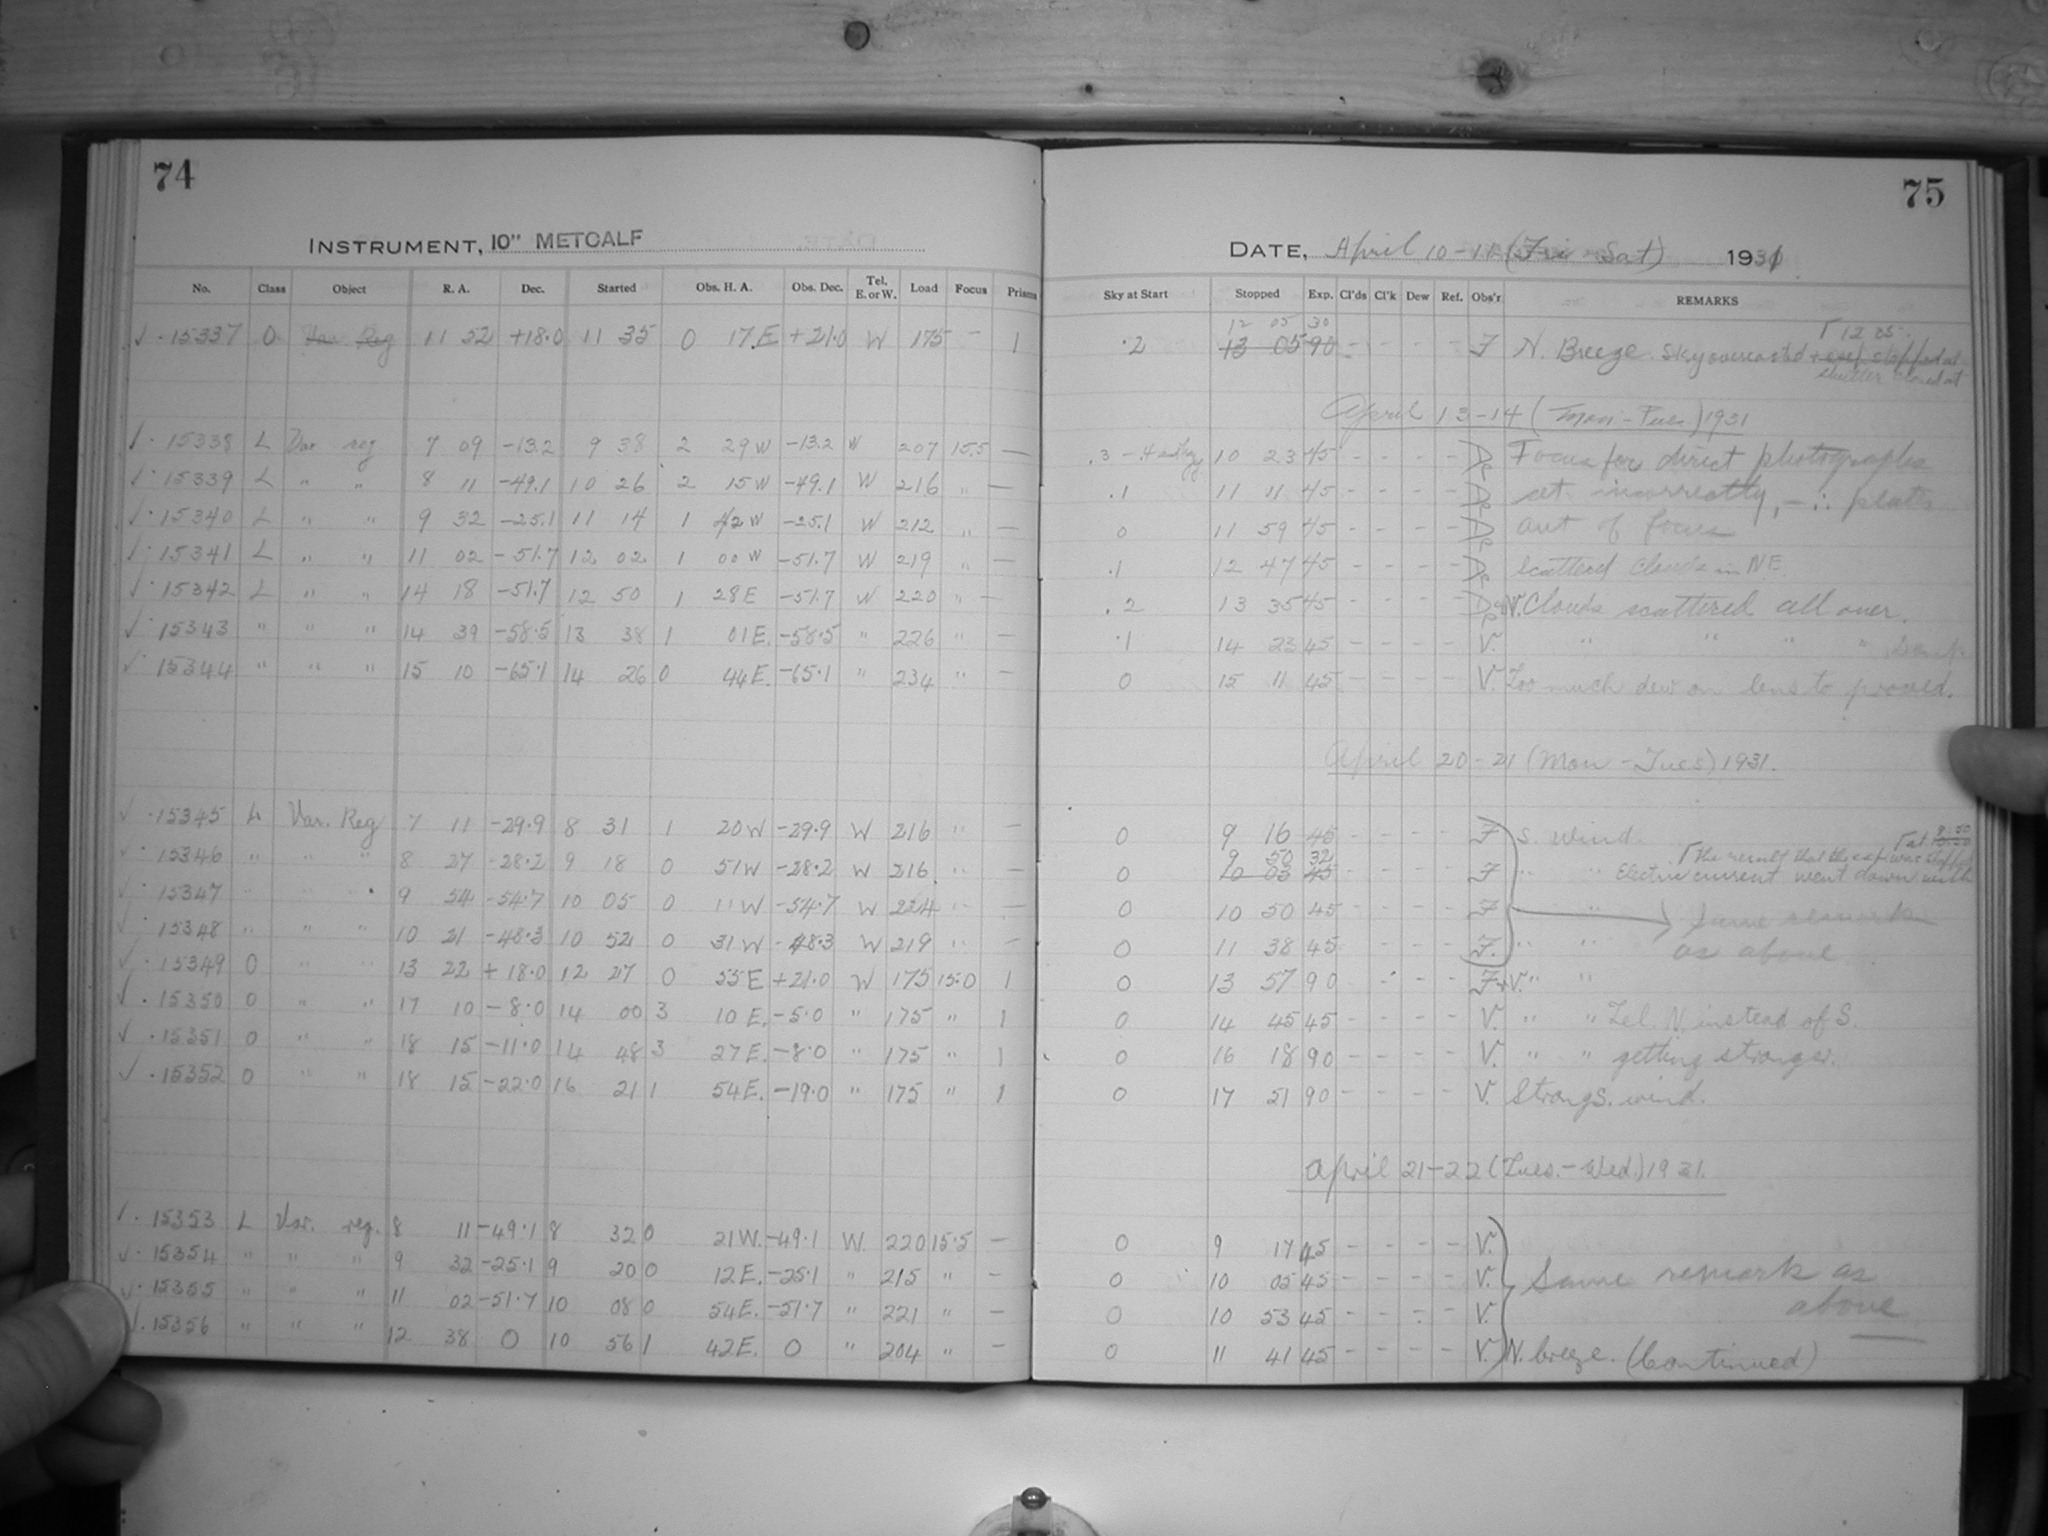 74
INSTRUMENT, 10" METCALF
No. Class Object R. A. Dec. Started Obs. H. A. Obs. Dec. Tel. E. or W. Load Focus Prisms
✓ · 15337 O Var Reg 11 52 +18.0 11 35 0 17 E +21.0 W 175 – 1
✓ · 15338 L Var reg 7 09 -13.2 9 38 2 29 W -13.2 W 207 15.5 —
✓ · 15339 L " " 8 11 -49.1 10 26 2 15 W -49.1 W 216 " —
✓ · 15340 L " " 9 32 -25.1 11 14 1 42 W -25.1 W 212 " —
✓ · 15341 L " " 11 02 -51.7 12 02 1 00 W -51.7 W 219 " —
✓ · 15342 L " " 14 18 -51.7 12 50 1 28 E -51.7 W 220 " —
✓ · 15343 " " " 14 39 -58.5 13 38 1 01 E. -58.5 " 226 " —
✓ · 15344 " " " 15 10 -65.1 14 26 0 44 E. -65.1 " 234 " —
✓ · 15345 L Var. Reg 7 11 -29.9 8 31 1 20 W -29.9 W 216 " —
✓ · 15346 " " " 8 27 -28.2 9 18 0 51 W -28.2 W 216 " —
✓ · 15347 " " " 9 54 -54.7 10 05 0 11 W -54.7 W 224 " —
✓ · 15348 " " " 10 21 -48.3 10 52 0 31 W -48.3 W 219 " —
✓ · 15349 O " " 13 22 +18.0 12 27 0 55 E +21.0 W 175 15.0 1
✓ · 15350 O " " 17 10 -8.0 14 00 3 10 E. -5.0 " 175 " 1
✓ · 15351 O " " 18 15 -11.0 14 48 3 27 E. -8.0 " 175 " 1
✓ · 15352 O " " 18 15 -22.0 16 21 1 54 E. -19.0 " 175 " 1
✓ · 15353 L Var. reg. 8 11 -49.1 8 32 0 21 W. -49.1 W. 220 15.5 —
✓ · 15354 " " " 9 32 -25.1 9 20 0 12 E. -25.1 " 215 " —
✓ · 15355 " " " 11 02 -51.7 10 08 0 54 E. -51.7 " 221 " —
✓ · 15356 " " " 12 38 0 10 56 1 42 E. 0 " 204 " —
75
DATE, April 10-11 (Fri - Sat) 1931
Sky at Start Stopped Exp. Cl'ds Cl'k Dew Ref. Obs'r REMARKS
12 05 30 12 05
.2 13 05 90 – – – – F N. Breeze. Sky overcasted + exp. stopped at
shutter closed at
April 13-14 (Mon-Tues) 1931
.3 - .4 10 23 45 – – – – De Focus for direct photographs
.1 11 11 45 – – – – De set incorrectly, – ∴ plates
0 11 59 45 – – – – De out of focus
.1 12 47 45 – – – – De Scattered clouds in NE.
.2 13 35 45 – – – – De+V. Clouds scattered all over.
.1 14 23 45 – – – – V. " " " " Damp
0 15 11 45 – – – – V. Too much dew on lens to proceed.
April 20-21 (Mon-Tues) 1931.
0 9 16 45 – – – – F S. wind.
9 50 32 the result that the exp. was stopped at 8.50
0 10 03 45 – – – – F " " Electric current went down with
0 10 50 45 – – – – F " Same remark
0 11 38 45 – – – – F. " " as above
0 13 57 90 – – – – F+V. " "
0 14 45 45 – – – – V. " " Tel. N. instead of S.
0 16 18 90 – – – – V. " " getting stronger.
0 17 51 90 – – – – V. Strong S. wind.
April 21-22 (Tues.-Wed.) 1931.
0 9 17 45 – – – – V.
0 10 05 45 – – – – V. Same remark as
0 10 53 45 – – – – V. above
0 11 41 45 – – – – V. N. breeze. (Continued)